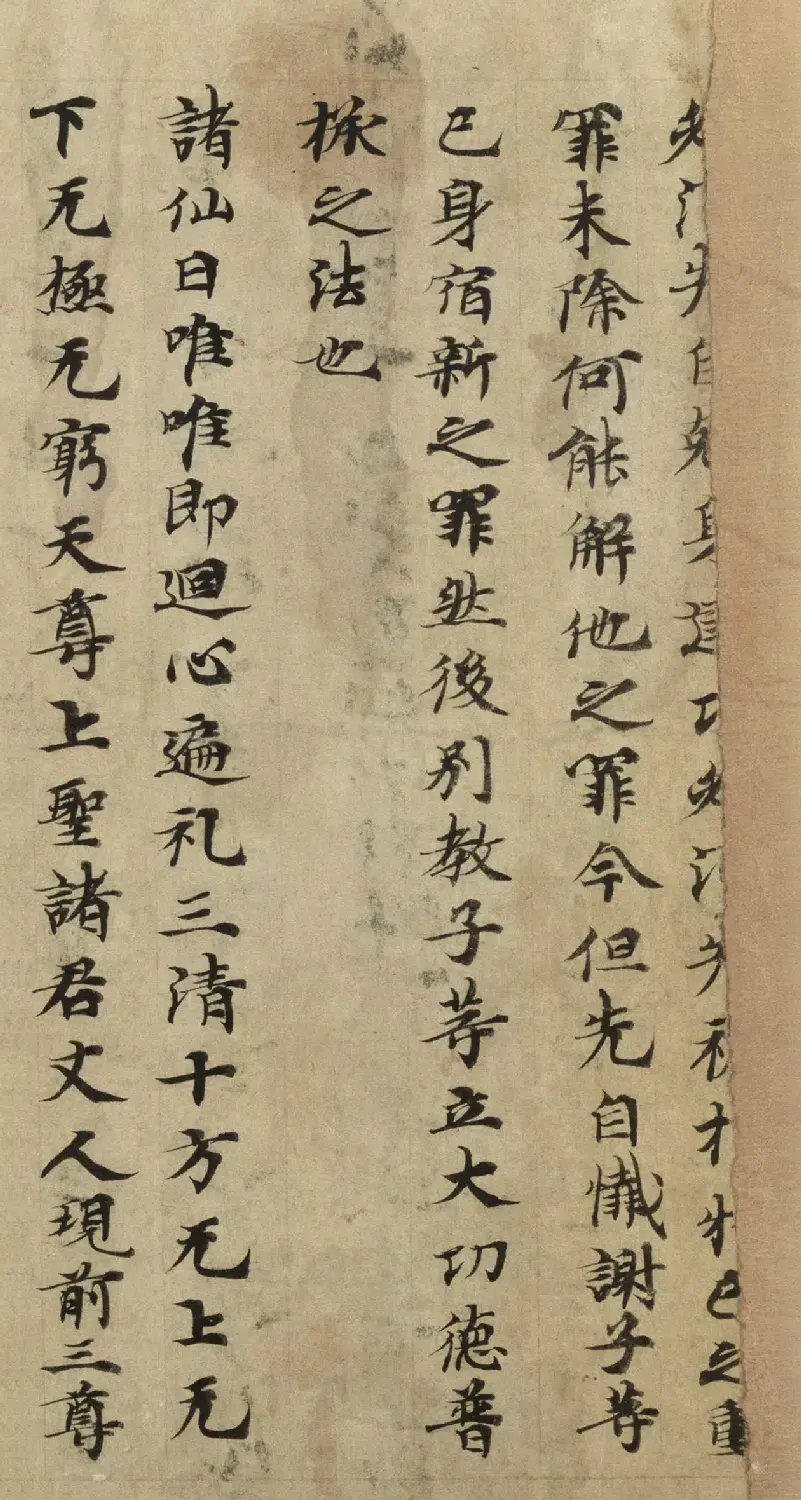 先自身功先己之重
罪未除何能解他之罪今但先自懴謝子等
已身宿新之罪然後別教子等立大功德普
之法也
諸仙曰唯唯即迴心遍礼三清十方无上无
下无極无窮天尊上聖諸君丈人現前三尊